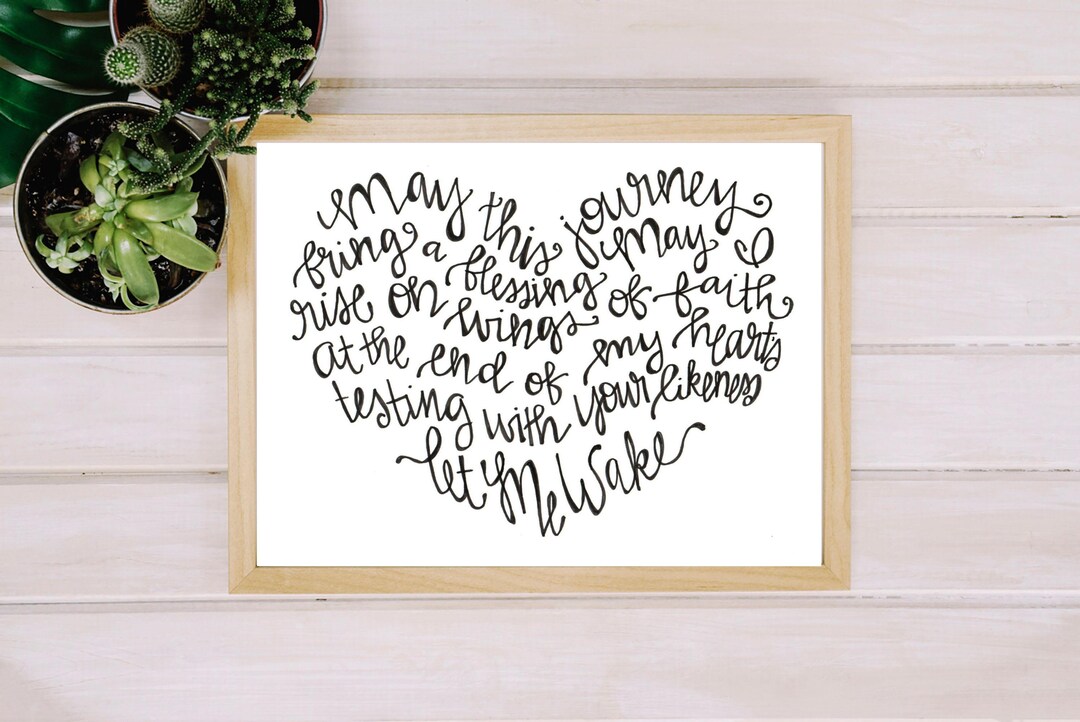 May this journey
bring a blessing May I
rise on wings of faith
at the end of my heart's
testing with your likeness
let Me Wake